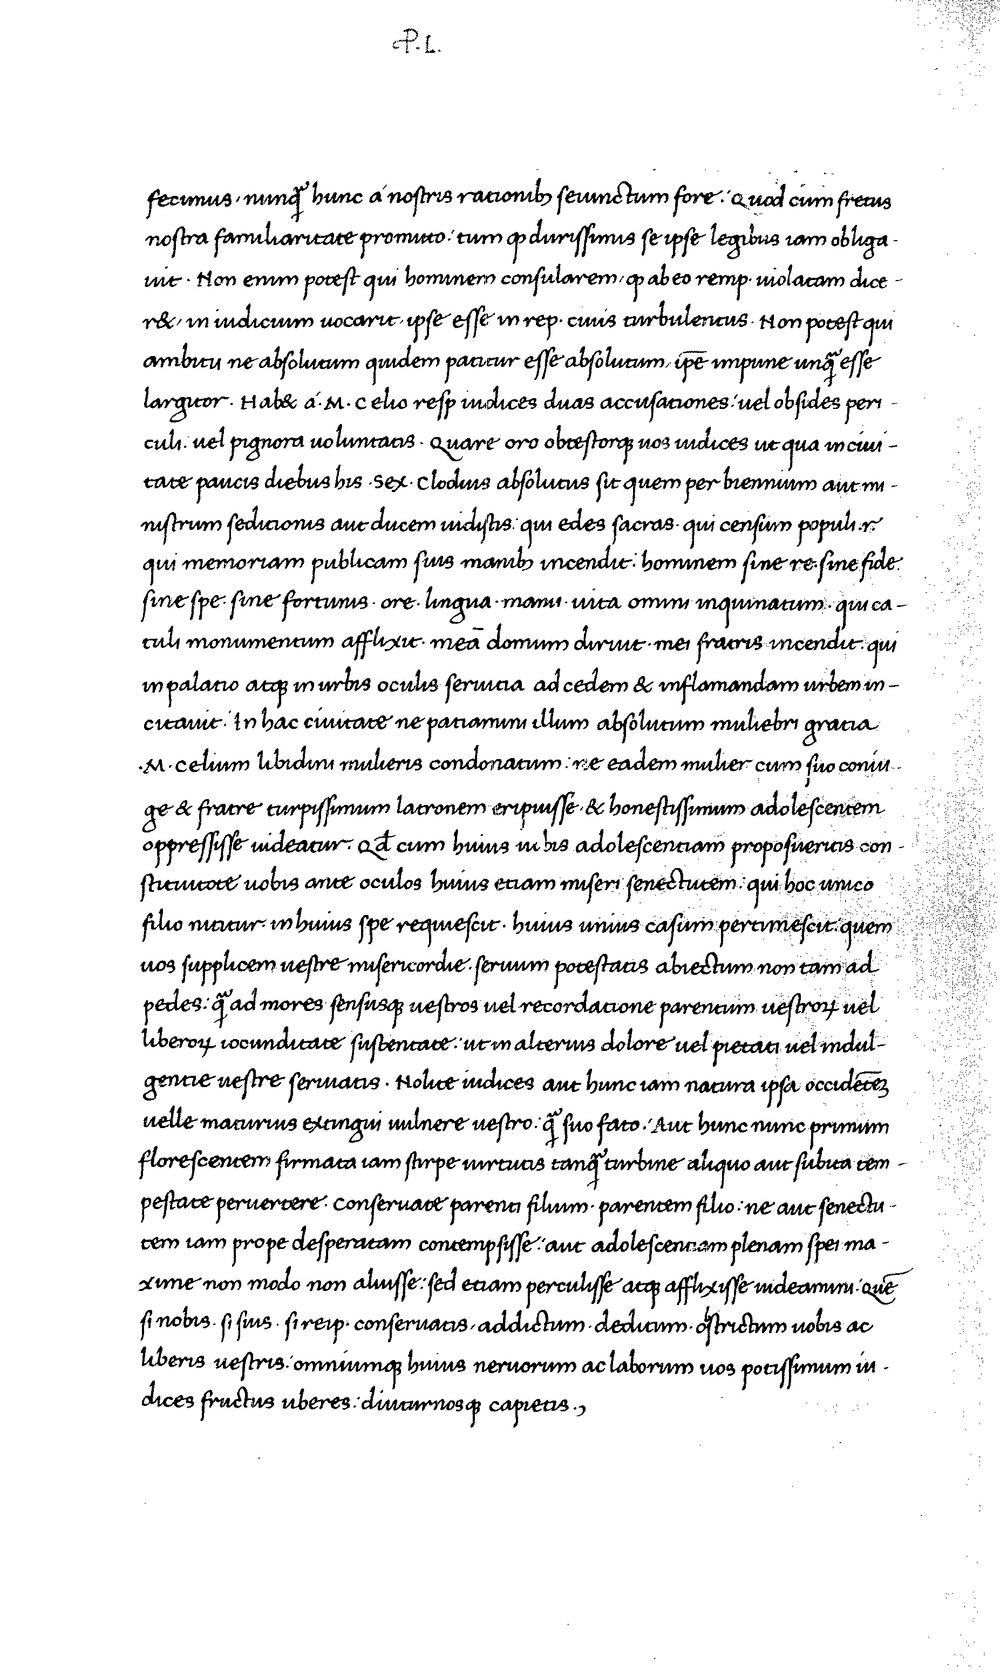 P. L.
fecimus, nunqͣ hunc a nostris rationibꝫ seiunctum fore. Quod cum fretus
nostra familiaritate promitto: tum ꝙ durissimis se ipse legibus iam obliga-
uit. Non enim potest qui hominem consularem, ꝙ ab eo remp. uiolatam dice-
r&, in iudicium uocarit, ipse esse in rep. ciuis turbulentus. Non potest qui
ambitu ne absolutum quidem patitur esse absolutum, ip̄e impune unqͣ esse
largitor. Hab& a .M. Celio resp iudices duas accusationes: uel obsides peri-
culi: uel pignora uoluntatis. Quare oro obtestorqꝫ uos iudices ut qua in ciui-
tate paucis diebus his .Sex. Clodius absolutus sit quem per biennium aut mi-
nistrum seditionis aut ducem uidistis: qui edes sacras. qui censum populi .r.
qui memoriam publicam suis manibꝫ incendit: hominem sine re. sine fide.
sine spe: sine fortunis. ore. lingua. manu. uita omni inquinatum. qui ca-
tuli monumentum afflixit. meā domum diruit. mei fratris incendit. qui
in palatio atqꝫ in urbis oculis seruitia ad cedem & inflamandam urbem in-
citauit. In hac ciuitate ne patiamini illum absolutum muliebri gratia
.M. Celium libidini mulieris condonatum: ne eadem mulier cum suo coniu-
ge & fratre turpissimum latronem eripuisse, & honestissimum adolescentem
oppressisse uideatur. Qd̄ cum huius iu bis adolescentiam proposueritis con-
stituitote uobis ante oculos huius etiam miseri senectutem: qui hoc unico
filio nititur. in huius spe requiescit. huius unius casum pertimescit. quem
uos supplicem uestre misericordie. seruum potestatis abiectum non tam ad
pedes: qͣ ad mores sensusqꝫ uestros uel recordatione parentum uestroꝝ uel
liberoꝝ iocunditate sustentate: ut in alterius dolore uel pietati uel indul-
gentie uestre seruiatis. Nolite iudices aut hunc iam natura ipsa occidētē
uelle maturius extingui uulnere uestro: qͣ suo fato: Aut hunc nunc primum
florescentem firmata iam stirpe uirtutis tanqͣ turbine aliquo aut subita tem-
pestate peruertere. Conseruate parenti filium. parentem filio: ne aut senectu-
tem iam prope desperatam contempsisse: aut adolescentiam plenam spei ma-
xime non modo non aluisse: sed etiam perculisse atqꝫ afflixisse uideamini. Quē
si nobis. si suis. si reip. conseruatis, addictum. deditum. obstrictum uobis ac
liberis uestris: omniumqꝫ huius neruorum ac laborum uos potissimum iu-
dices fructus uberes: diuturnosqꝫ capietis.,